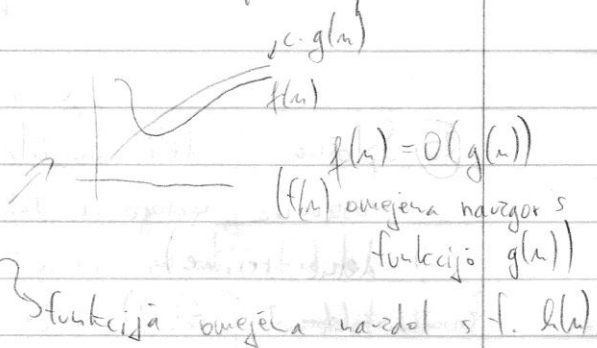 c·g(n)
f(n)
f(n) = O(g(n))
(f(n) omejena navzgor s
funkcijo g(n))
funkcija omejena navzdol s f. h(n)